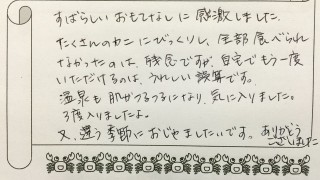 すばらしいおもてなしに感激しました。
たくさんのカニにびっくりし、全部食べられ
なかったのは、残念ですが、自宅でもう一度
いただけるのは、うれしい誤算です。
温泉も肌がつるつるになり、気に入りました。
3度入りましたよ。
又、違う季節におじゃましたいです。ありがとう
ございました